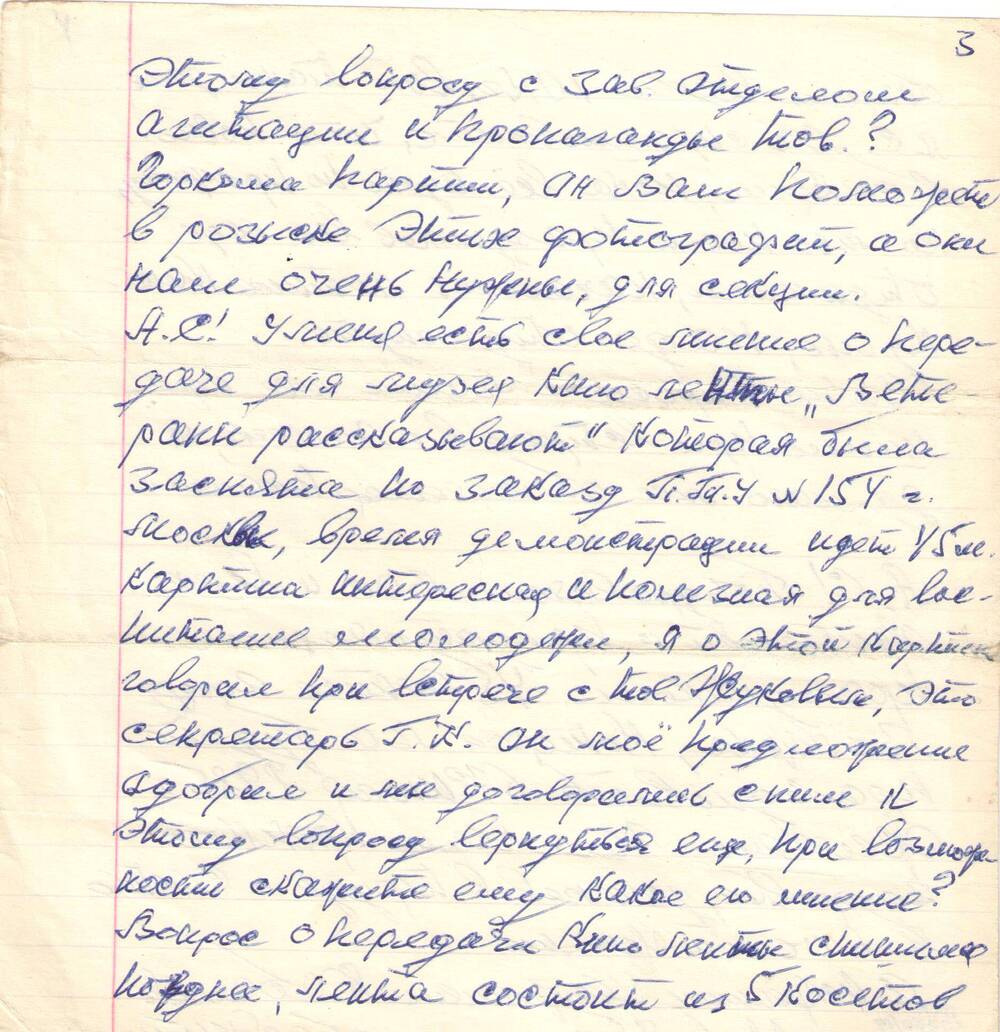 3
Этому вопросу с Зав. Отделом
агитации и пропаганды тов.?
Горкома партии, он Вам поможет
в розыске этих фотографий, а они
нам очень нужны, для секции.
А.С! У меня есть свое мнение о пере-
даче для музея кино ленты „Вете-
раны рассказывают" которая была
заснята по заказу П.Т.У № 154 г.
Москвы, время демонстрации идет 45м.
Картина интересная и полезная для вос-
питание молодежи, я о этой картине
говорил при встрече с тов. Жуковым, это
секретарь Г.К. он моё предложение
одобрил и мы договорились с ним к
этому вопросу вернуться еще, при возмож-
ности скажите ему какое его мнение?
Вопрос о передачи кино ленты
лента состоит из 5 косетов